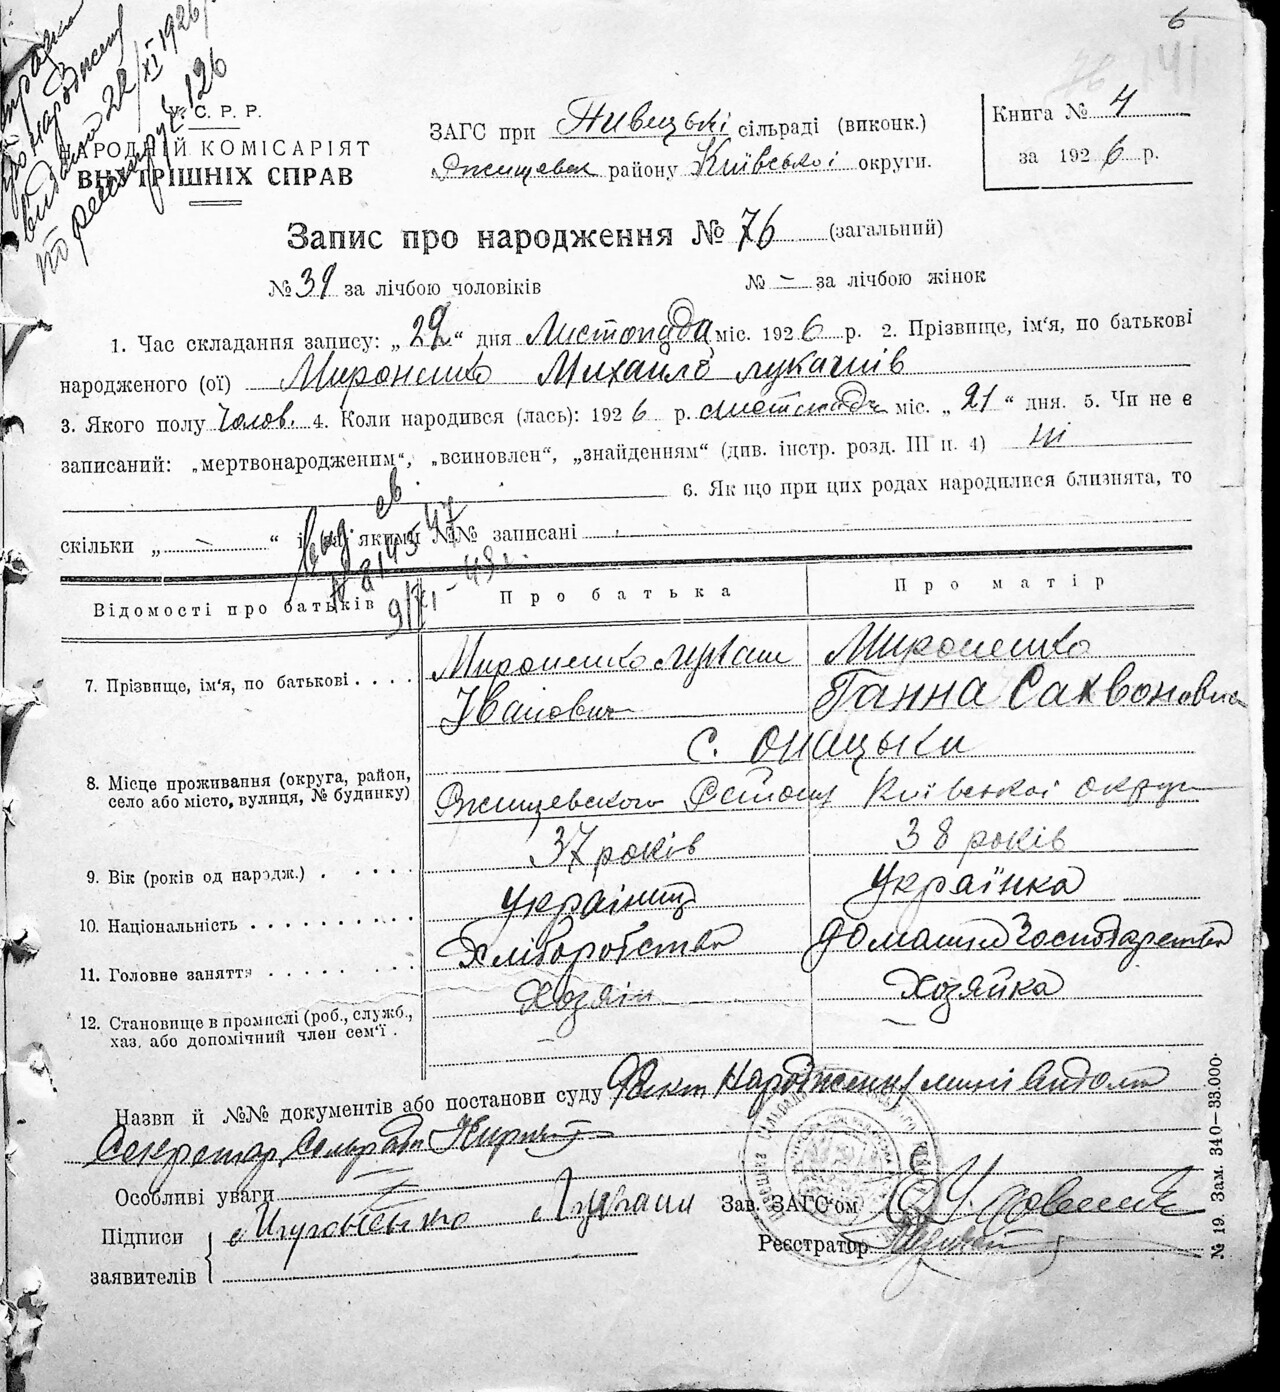 6
141
видано 22/XI 1926
126
У. С. Р. Р.
НАРОДНІЙ КОМІСАРІЯТ
ВНУТРІШНІХ СПРАВ
ЗАГС при Пивецькі сільраді (виконк.)
Ржищевск району Київської округи.
Книга № 4
за 1926 р.
Запис про народження № 76 (загальний)
№ 39 за лічбою чоловіків № – за лічбою жінок
1. Час складання запису: „29“ дня Листопада міс. 1926 р. 2. Прізвище, ім'я, по батькові
народженого (ої) Мироненко Михайло Лукашів
3. Якого полу Чолов. 4. Коли народився (лась): 1926 р. листопада міс. „21“ дня. 5. Чи не є
записаний: „мертвонародженим“, „всиновлен“, „знайденням“ (див. інстр. розд. III п. 4) ні
6. Якщо при цих родах народилися близнята, то
скільки „ – “ і якими №№ записані
Відомості про батьків Про батька Про матір
7. Прізвище, ім'я, по батькові Мироненко Лукаш Мироненко
Іванович Ганна Сахвоновна
с. Онацьки
8. Місце проживання (округа, район,
село або місто, вулиця, № будинку) Ржищевского Району Київської округи
9. Вік (років од народж.) 37 років 38 років
10. Національність Українец Українка
11. Головне заняття Хліборобство домашнє Господарство
12. Становище в промислі (роб., служб.,
хаз. або допомічний член сем'ї . Хозяін Хозяйка
Назви й №№ документів або постанови суду Факт Народження мині видомі
Секретар Сельради
Особливі уваги
Підписи
заявителів
Мироненко Лукаш
Зав. ЗАГС'ом
Реєстратор
№ 19. Зам. 340—33.000.